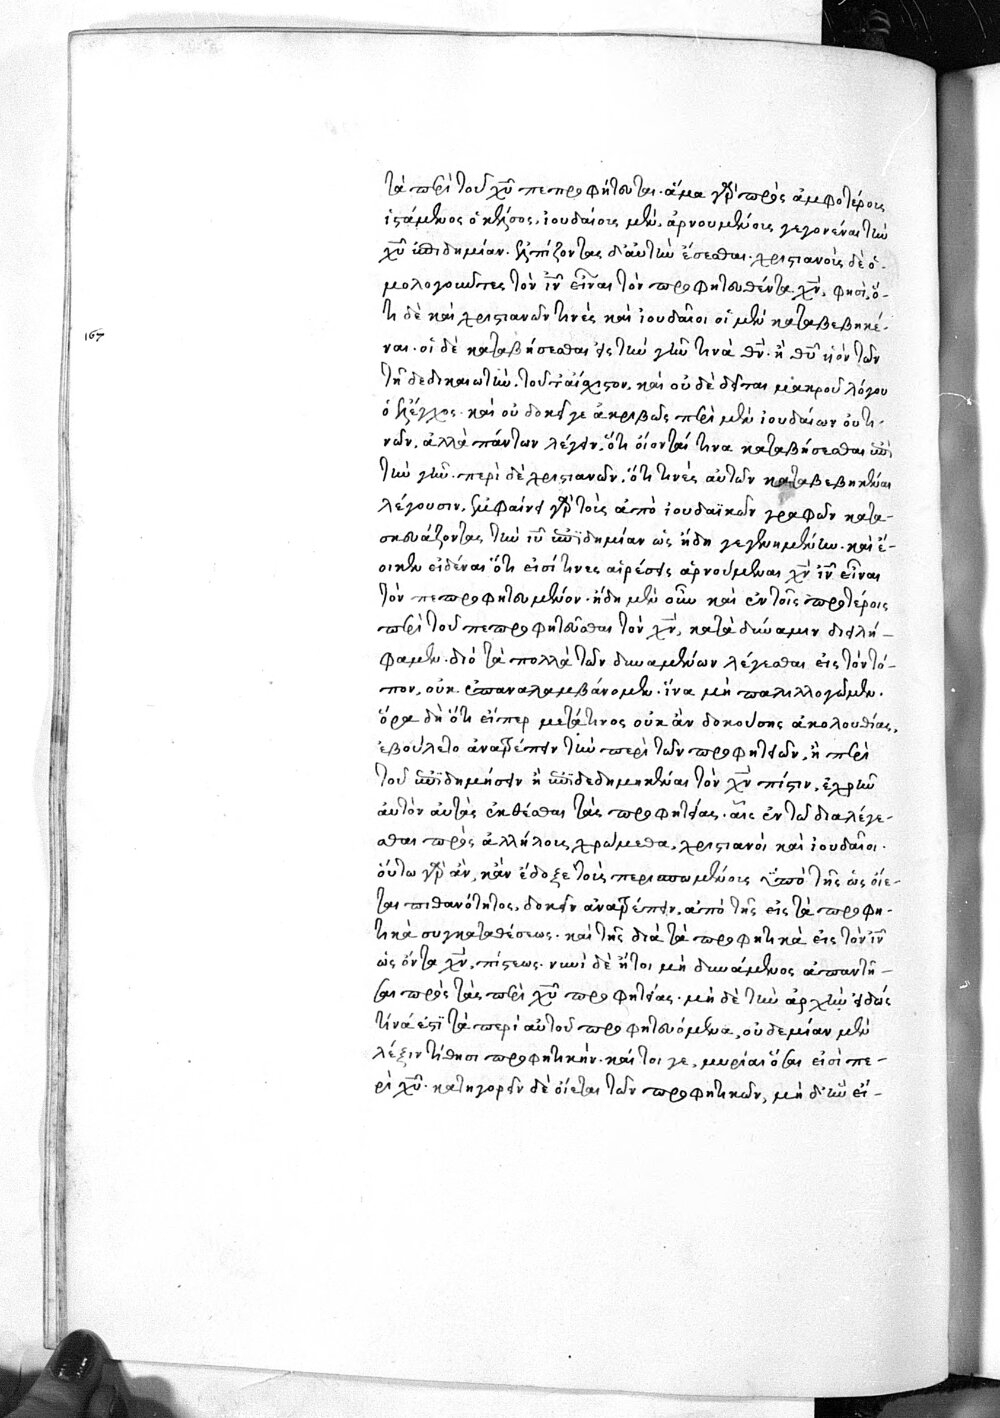 τὰ περὶ τοῦ χυ πεπροφήτευται. ἅμα γὰρ πρὸς ἀμφοτέροις
ἱστάμενος ὁ κέλσος, ἰουδαίοις μὲν, ἀρνουμένοις γεγονέναι τὴν
χυ ἐπιδημίαν. ἐλπίζοντας δ' αὐτὴν ἔσεσθαι. χριστιανοῖς δὲ ὁ-
μολογοῦντες τὸν ιν εἶναι τὸν προφητευθέντα χν, φησὶ, ὅ-
τι δὲ καὶ χριστιανῶν τινὲς καὶ ἰουδαῖοι οἱ μὲν καταβεβηκέ-
167
ναι. οἱ δὲ καταβήσεσθαι εἰς τὴν γῆν τινὰ θν. ἢ θυ υἱὸν τῶν
τῇδε δικαιωτὴν, τοῦτ' αἴσχιστον, καὶ οὐδὲ δεῖται μακροῦ λόγου
ὁ ἔλεγχος. καὶ οὐ δοκεῖ γε ἀκριβῶς περὶ μὲν ἰουδαίων οὔ τι-
νῶν, ἀλλὰ πάντων λέγειν, ὅτι οἴονταί τινα καταβήσεσθαι ἐπὶ
τὴν γῆν. περὶ δὲ χριστιανῶν, ὅτι τινὲς αὐτῶν καταβεβηκέναι
λέγουσιν. ἐμφαίνει γὰρ τοὺς ἀπὸ ἰουδαϊκῶν γραφῶν κατα-
σκευάζοντας τὴν ιυ ἐπιδημίαν ὡς ἤδη γεγενημένην. καὶ ἔ-
οικεν εἰδέναι ὅτι εἰσί τινες αἱρέσεις ἀρνούμεναι χν ιν εἶναι
τὸν πεπροφητευμένον. ἤδη μὲν οὖν καὶ ἐν τοῖς προτέροις
περὶ τοῦ πεπροφητεῦσθαι τὸν χν, κατὰ δύναμιν διειλή-
φαμεν. διὸ τὰ πολλὰ τῶν δυναμένων λέγεσθαι εἰς τὸν τό-
πον, οὐκ ἐπαναλαμβάνομεν. ἵνα μὴ παλιλλογῶμεν.
ὅρα δὴ ὅτι εἴπερ μετά τινος οὐκ ἂν δοκούσης ἀκολουθίας,
ἐβούλετο ἀνατρέπειν τὴν περὶ τῶν προφητειῶν, ἢ περὶ
τοῦ ἐπιδημήσειν ἢ ἐπιδεδημηκέναι τὸν χν πίστιν, ἐχρῆν
αὐτὸν αὐτὰς ἐκθέσθαι τὰς προφητείας. αἷς ἐν τῷ διαλέγε-
σθαι πρὸς ἀλλήλους χρώμεθα, χριστιανοὶ καὶ ἰουδαῖοι.
οὕτω γὰρ ἂν, κἂν ἔδοξε τοὺς περισπωμένους ὑπὸ τῆς ὡς οἴε-
ται πιθανότητος, δοκεῖν ἀνατρέπειν, ἀπὸ τῆς εἰς τὰ προφη-
τικὰ συγκαταθέσεως. καὶ τῆς διὰ τὰ προφητικὰ εἰς τὸν ιν
ὡς ὄντα χν, πίστεως. νυνὶ δὲ ἤτοι μὴ δυνάμενος ἀπαντῆ-
σαι πρὸς τὰς περὶ χυ προφητείας. μὴ δὲ τὴν ἀρχὴν εἰδὼς
τίνά ἐστι τὰ περὶ αὐτοῦ προφητευόμενα, οὐδεμίαν μὲν
λέξιν τίθησι προφητικήν. καί τοι γε, μυρίαι ὅσαι εἰσὶ πε-
ρὶ χυ. κατηγορεῖν δὲ οἴεται τῶν προφητικῶν, μὴ δ' ἣν εἴ-